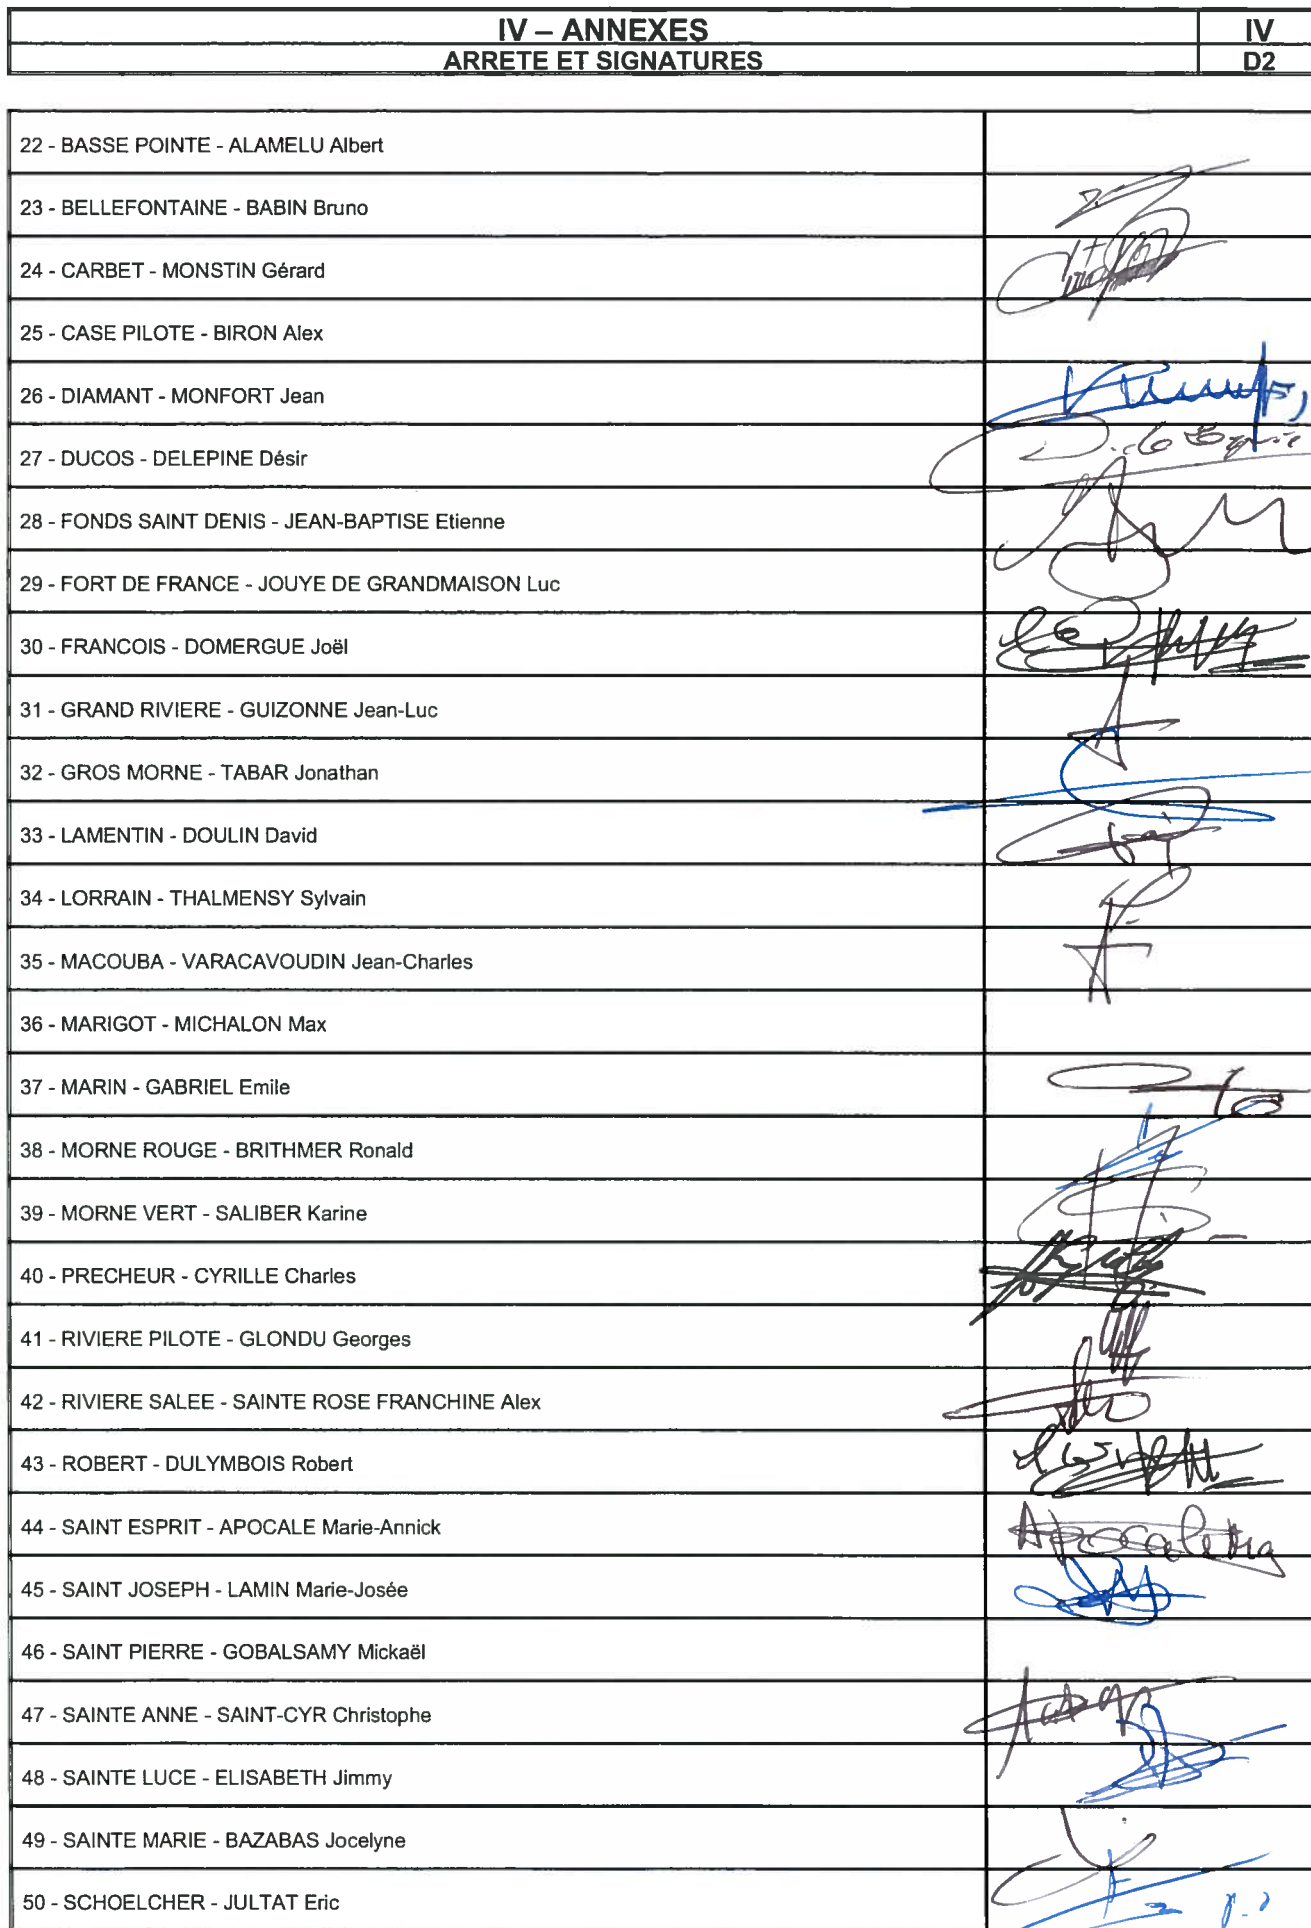 IV – ANNEXES IV
ARRETE ET SIGNATURES D2
22 - BASSE POINTE - ALAMELU Albert
23 - BELLEFONTAINE - BABIN Bruno
24 - CARBET - MONSTIN Gérard
25 - CASE PILOTE - BIRON Alex
26 - DIAMANT - MONFORT Jean
27 - DUCOS - DELEPINE Désir
28 - FONDS SAINT DENIS - JEAN-BAPTISE Etienne
29 - FORT DE FRANCE - JOUYE DE GRANDMAISON Luc
30 - FRANCOIS - DOMERGUE Joël
31 - GRAND RIVIERE - GUIZONNE Jean-Luc
32 - GROS MORNE - TABAR Jonathan
33 - LAMENTIN - DOULIN David
34 - LORRAIN - THALMENSY Sylvain
35 - MACOUBA - VARACAVOUDIN Jean-Charles
36 - MARIGOT - MICHALON Max
37 - MARIN - GABRIEL Emile
38 - MORNE ROUGE - BRITHMER Ronald
39 - MORNE VERT - SALIBER Karine
40 - PRECHEUR - CYRILLE Charles
41 - RIVIERE PILOTE - GLONDU Georges
42 - RIVIERE SALEE - SAINTE ROSE FRANCHINE Alex
43 - ROBERT - DULYMBOIS Robert
44 - SAINT ESPRIT - APOCALE Marie-Annick
45 - SAINT JOSEPH - LAMIN Marie-Josée
46 - SAINT PIERRE - GOBALSAMY Mickaël
47 - SAINTE ANNE - SAINT-CYR Christophe
48 - SAINTE LUCE - ELISABETH Jimmy
49 - SAINTE MARIE - BAZABAS Jocelyne
50 - SCHOELCHER - JULTAT Eric